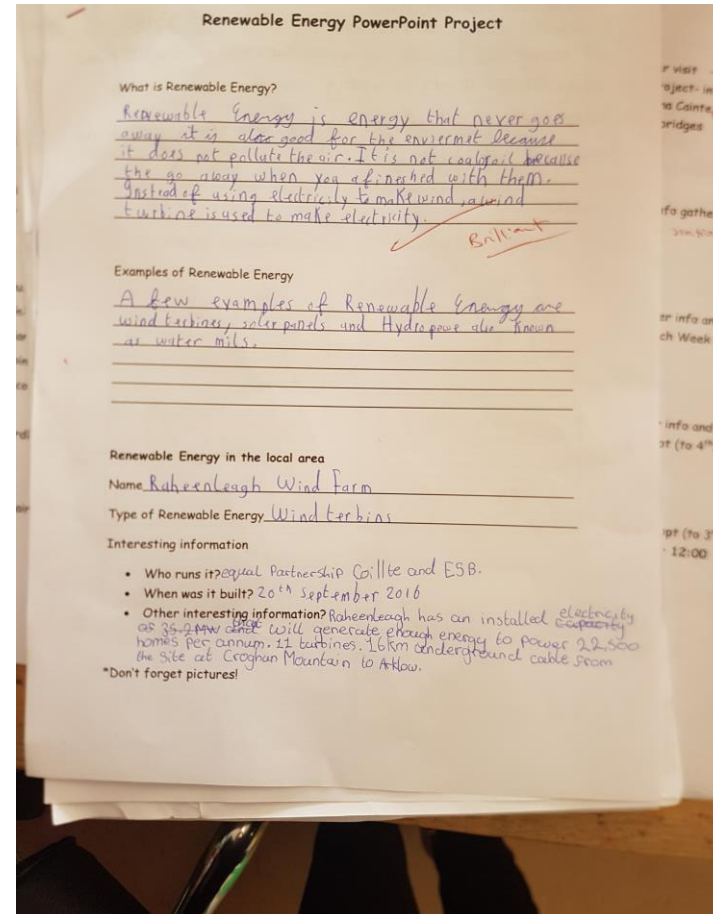 Renewable Energy PowerPoint Project
What is Renewable Energy?
Renewable Energy is energy that never goes
away it is also good for the enviermet because
it does not pollute the air. It is not coal,oil because
the go away when you afineshed with them.
Instead of using electricity to make wind, a wind
turbine is used to make electricity.
Brilliant
Examples of Renewable Energy
A few examples of Renewable Energy are
wind terbines, soler panels and Hydropowe also known
as water mils.
Renewable Energy in the local area
Name Raheenleagh Wind Farm
Type of Renewable Energy Wind terbins
Interesting information
• Who runs it? equal Partnership Coillte and ESB.
• When was it built? 20th September 2016
• Other interesting information? Raheenleagh has an installed electricity
capacity
of 35.2MW and will generate enough energy to power 22,500
homes per annum. 11 turbines. 16km underground cable from
the site at Croghan Mountain to Arklow.
*Don't forget pictures!
r visit
oject- in
na Cainte,
bridges
nfo gathe
er info an
ch Week
info and
pt (to 4th
pt (to 3
12:00